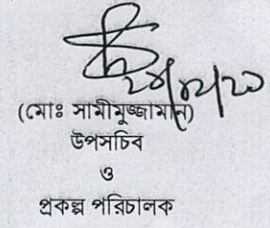 (মোঃ সামীমুজ্জামান)
উপসচিব
ও
প্রকল্প পরিচালক